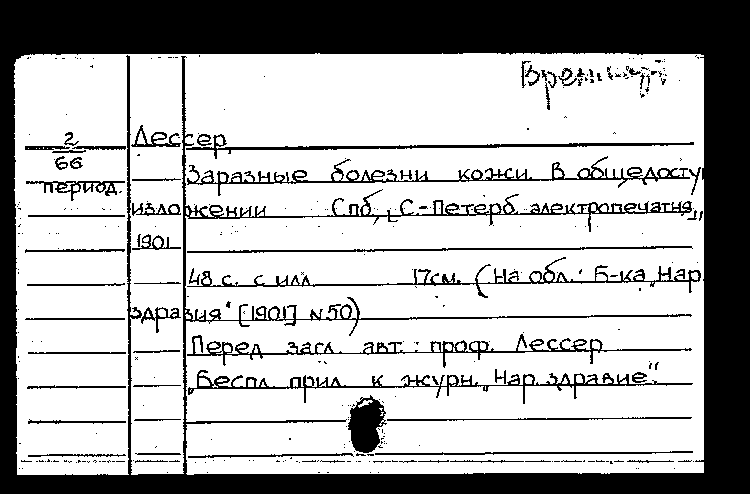 2
66
период.
Лессер,
Заразные болезни кожи. В общедосту
изложении Спб, "С.-Петерб. электропечатня",
1901
48 с. с илл. 17см. (На обл.: Б-ка „Нар.
здравия" [1901] №50)
Перед загл. авт.: проф. Лессер
„Беспл. прил. к журн. „Нар. здравие".